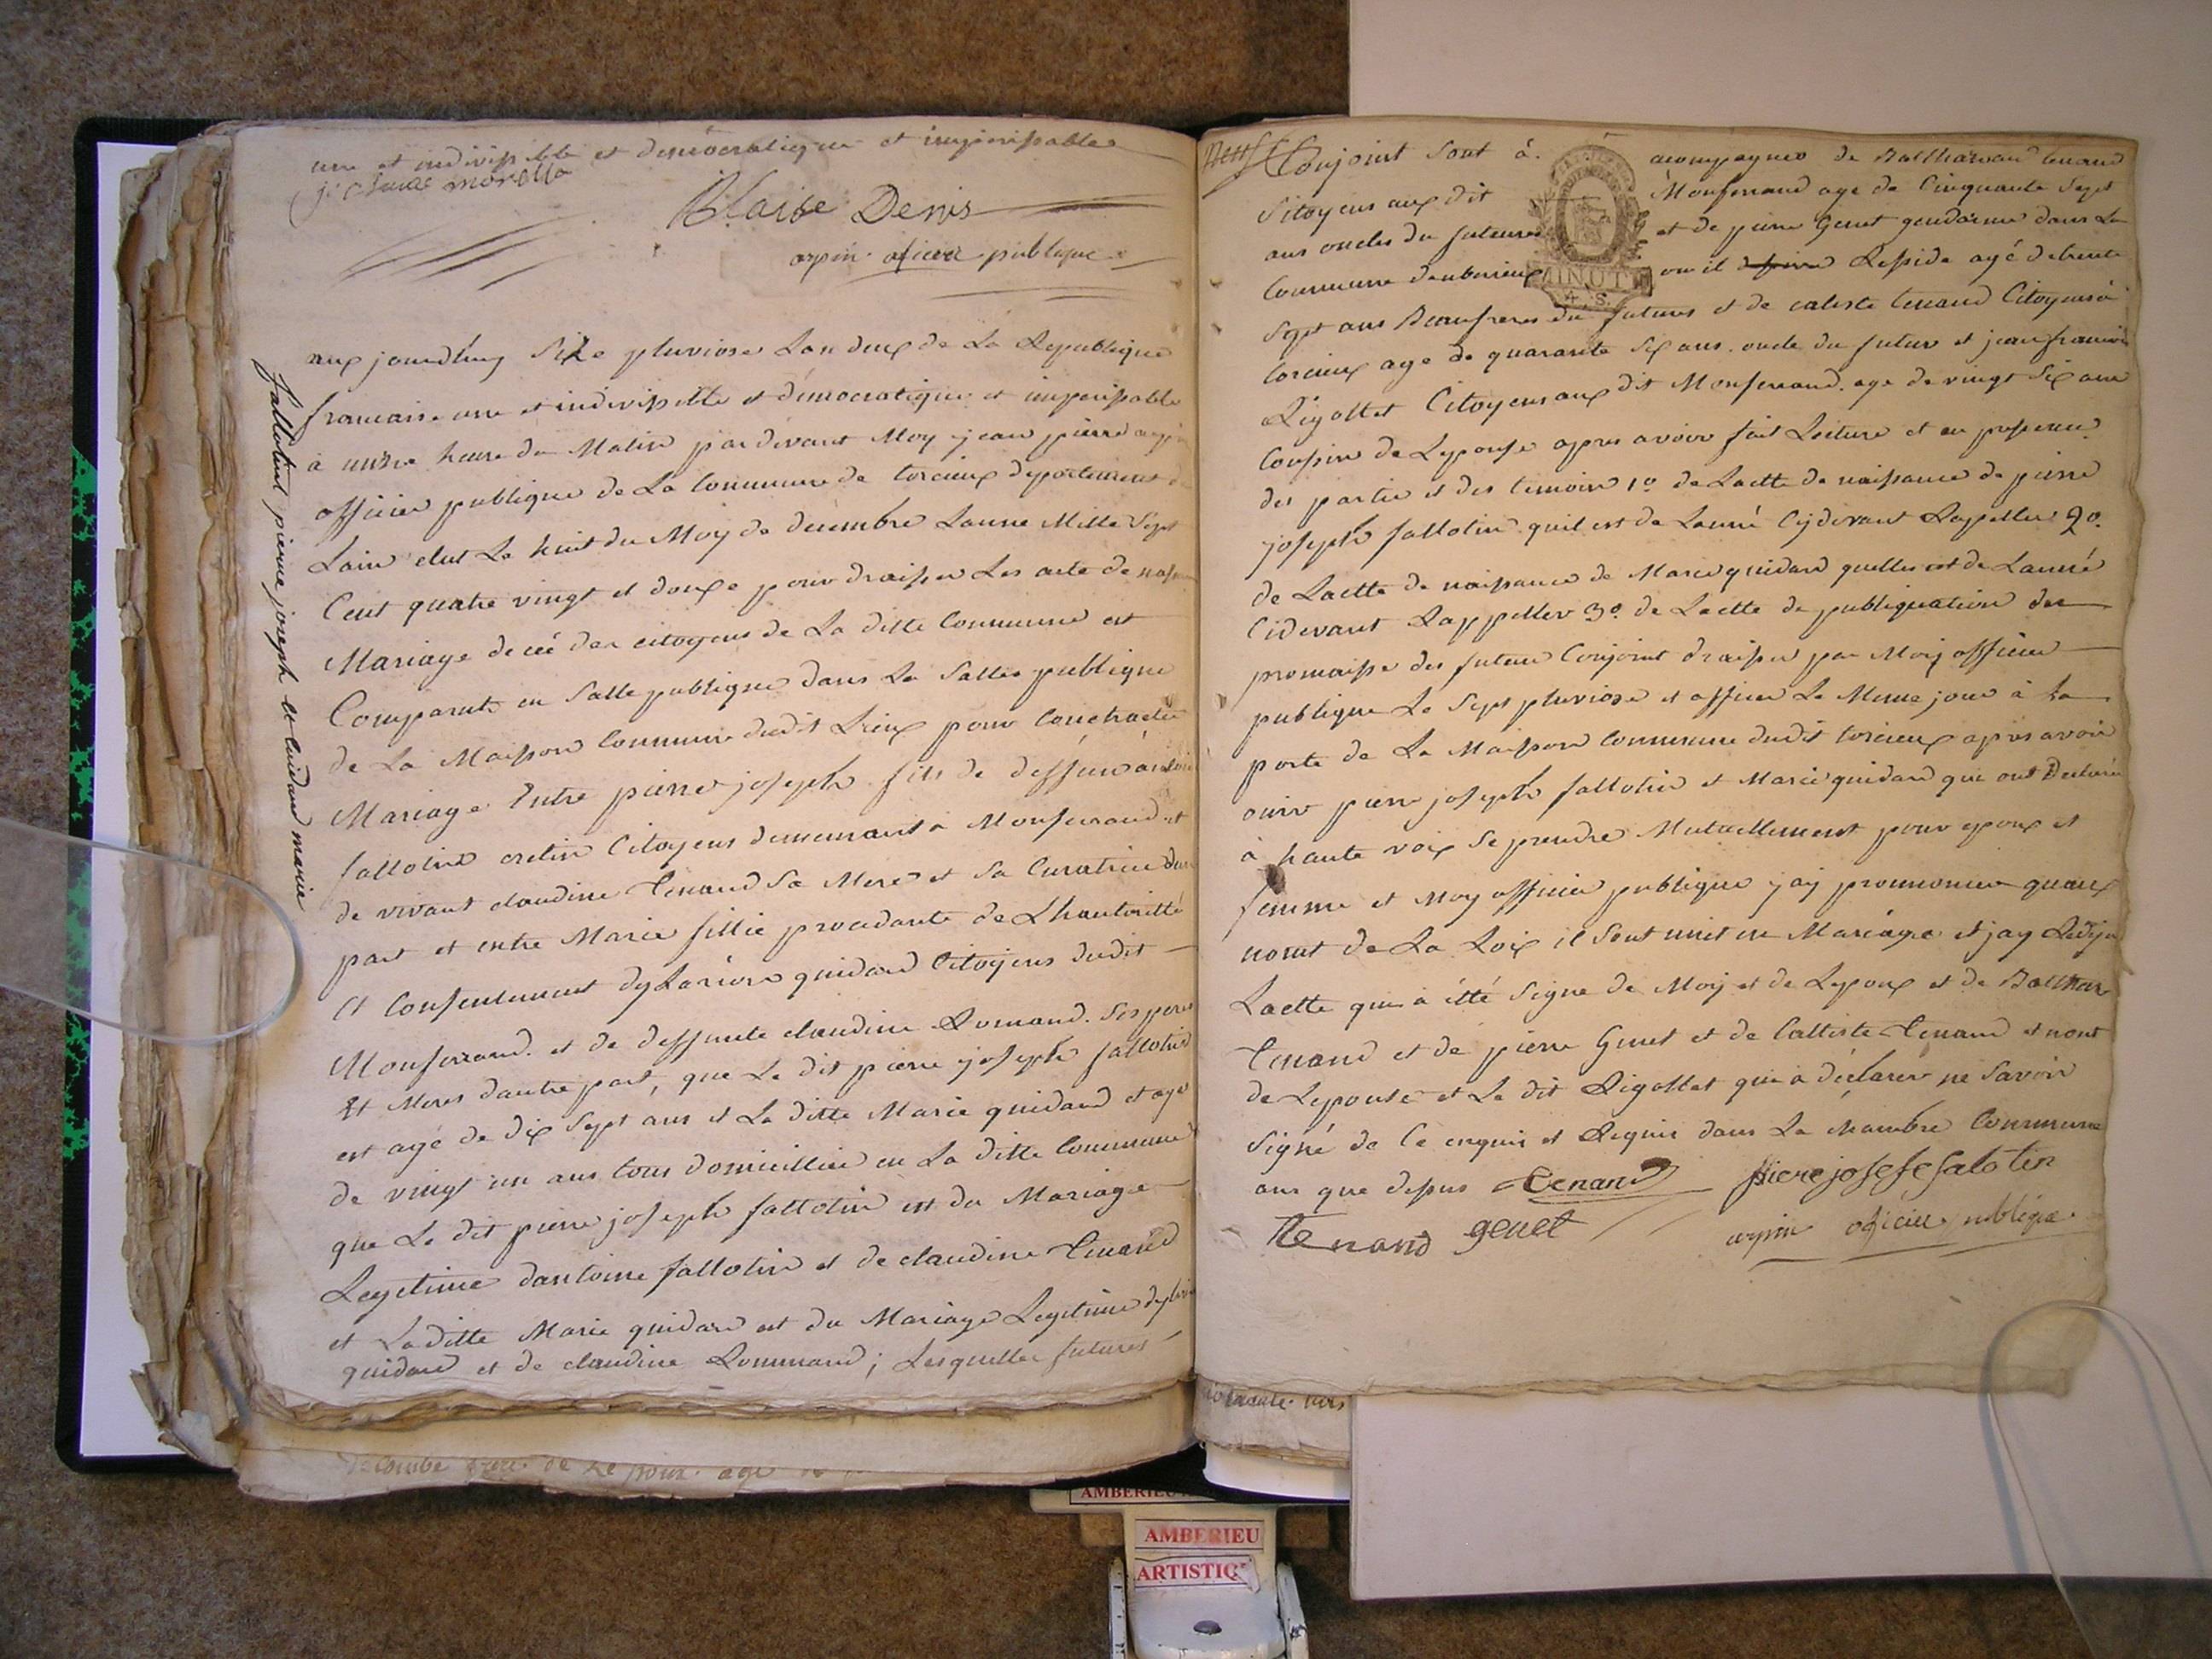 une et indivissible et démocratique et imperissable
j: Claude morello
Blaise Denis
arpin oficier publique
aux jourdhuy Size pluviose Lan deux de La Republique
francaise une et indivissible et démocratique et imperissable
à unze heure du Matin pardevant Moy jean pierre arpin
officier publique de La Commune de torcieux departement de
Lain elut Le huit du Moy de decembre Lanne Mille Sept
Cent quatre vingt et douze pour draisser Les acte de
Mariage decée des citoyens de La ditte Commune est
Comparut en Salle publique dans La Salles publique
de La Maison Commune dudit Lieux pour Contracter
Mariage Entre pierre joseph fils de deffunt antoine
fallotin cretin Citoyens demeurant à Monferrand et
de vivant claudine Tenand Sa Mere et Sa Curatrice dune
part et entre Marie fillie procedante de Lhautoritté
et Consentement dylarion guidard Citoyens dudit
Monferrand. et de deffunte claudine Romand. Ses peres
Et Meres dautre part, que Le dit pierre joseph fallotin
est agé de dix Sept ans et La ditte Marie guidard et agé
de vingt un ans tous domicilliée en La ditte Commune
que Le dit pierre joseph fallotin est du Mariage
Legetime dantoine fallotin et de claudine Tenand
et Laditte Marie guidard est du Mariage Legetime dylarion
guidard et de claudine Rommand; Lesquelles futures
fallotint pierre joseph et Cuidard marie
Neuf
Conjoint Sont à. acompagnes de Balthazard tenand
Sitoyens aux dit Monferrand age de Cinquante Sept
ans oncles du futeures et de pierre Genet gendarme dans La
Commune danberieux ou il Resside agé de trente
Sept ans Beaufreres du futures et de caliste tenand Citoyens à
torcieux age de quarante Six ans. oncle du futur et jean francois
Rigollet Citoyens aux dit Monferrand. age de vingt Six ans
Coussin de Lepouse apres avoir fait Leiture et en pressence
des partie et des temoin 1º de Lactte de naissance de pierre
joseph fallotin quil est de Lanné Cydevant Rappeller 2º.
de Lactte de naissance de Marie guidard quelles est de Lanné
Cidevant Rappeller 3º. de Lactte de publiquation des
promaisse des future Conjoint draisser par Moy officier
publique Le Sept pluviose et afficer Le Meme jour à La
porte de La Maisson Commune dudit torcieux apres avoir
ouir pierre joseph fallotin et Marie guidard que ont Declarée
à haute voix Se prendre Mutuellement pour epoux et
femme et Moy officier publique jay prononcer quaux
nomt de La Loix il Sont unit en Mariage et jay Redijer
Lactte qui à étté Signe de Moy et de Lepoux et de Balthar
Tenand et de pierre Genet et de Calliste Tenand et nont
de Lepouse et Le dit Rigollet qui à déclarer ne Savoir
Signé de Ce enquis et Requis dans La chambre Commune
ans que dessus Tenand pierejosefefalotin
Tenand genet arpin oficier publique
MINUT
4. S.
AMBERIEU
AMBERIEU
ARTISTIQ